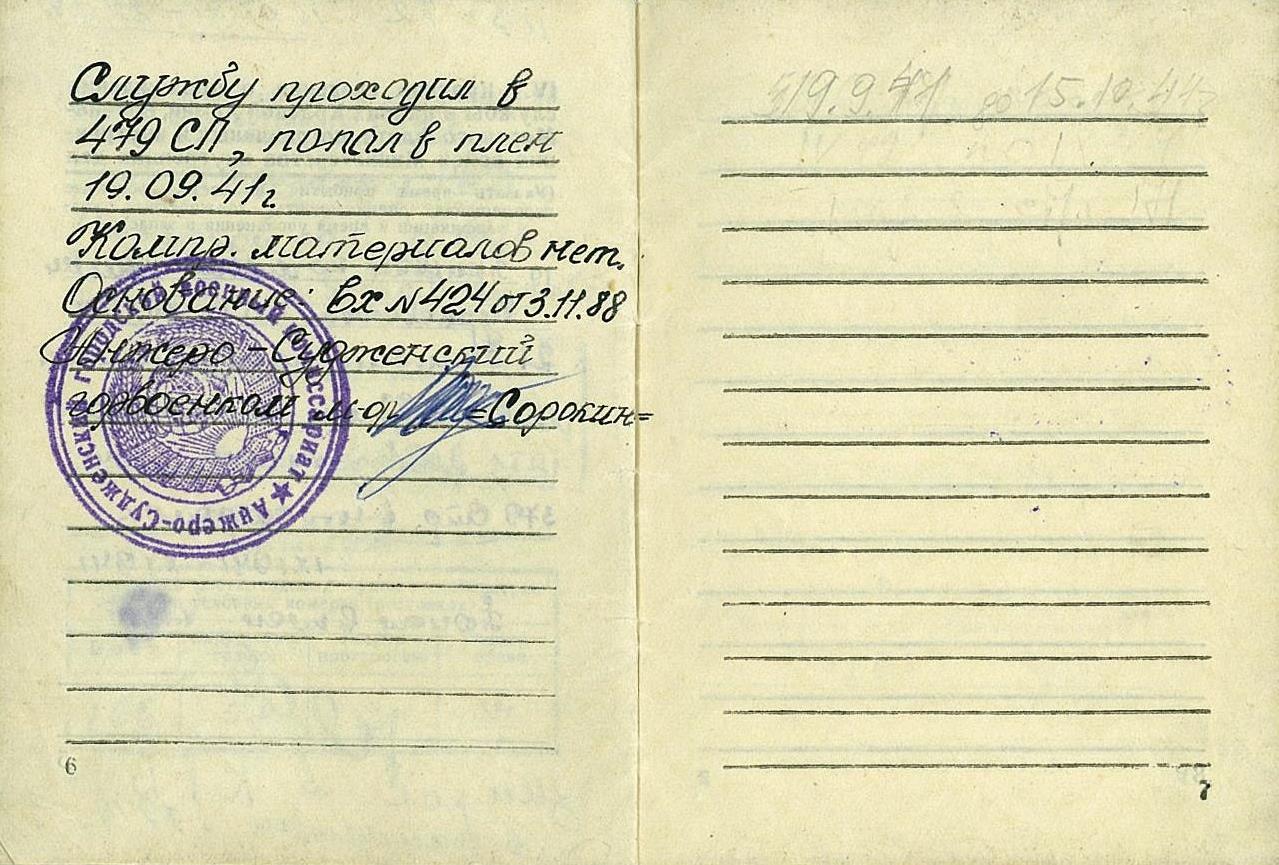 Службу проходил в
479 СП, попал в плен
19.09.41г.
Компр. материалов нет.
Основание: вх №424 от 3.11.88
Анжеро-Судженский
горвоенком м-р =Сорокин=
Анжеро-Судженский городской военный комиссариат ★
6
19.9.41 до 15.10.41
7